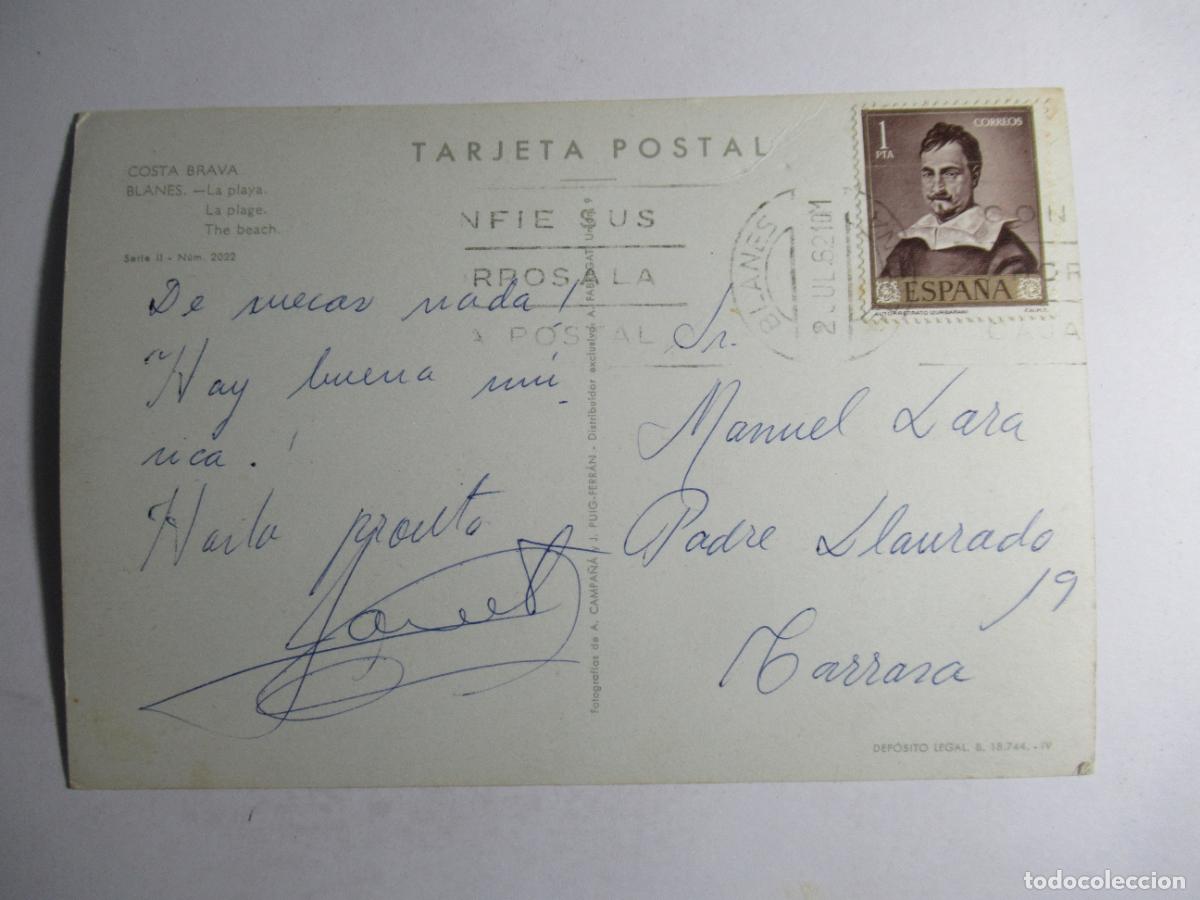 TARJETA POSTAL
COSTA BRAVA
BLANES. —La playa.
La plage.
The beach.
Serie II - Núm. 2022
1
PTA
CORREOS
ESPAÑA
AUTORRETRATO (ZURBARAN)
F.N.M.T.
NFIE SUS
RROS A LA
A POSTAL
BLANES
2 JUL 62 10M
CON
OR
CAJA
De nada!
Hay buena mú
sica.!
Hasta pronto
Sr.
Manuel Lara
Padre Llaurado
19
Tarrasa
Fotografías de A. CAMPAÑÁ y J. PUIG-FERRÁN - Distribuidor exclusivo A. FABREGAT
DEPÓSITO LEGAL. B. 18.744. - IV
todocoleccion